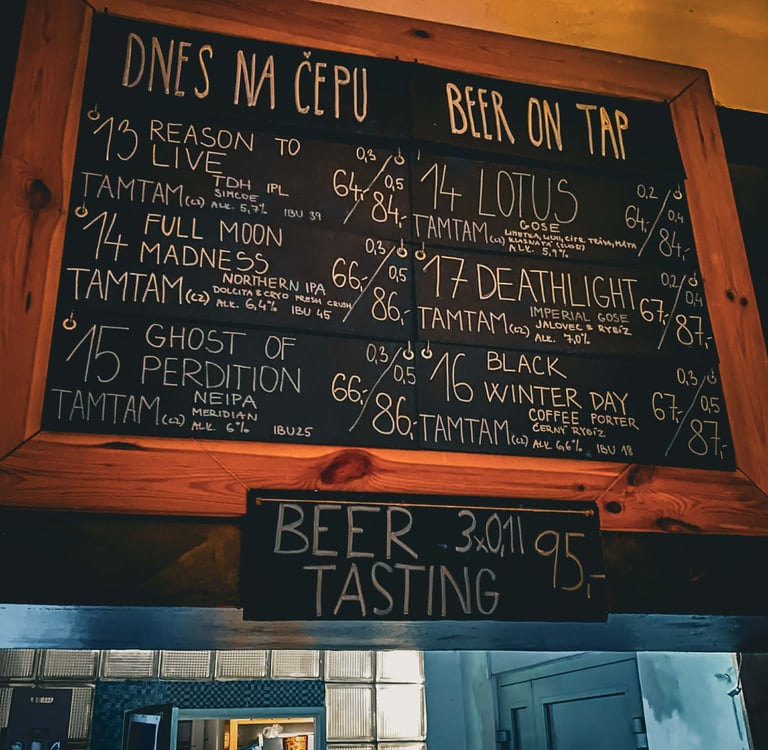 DNES NA ČEPU
13 REASON TO LIVE
0,3/0,5
64,-/84,-
TAMTAM(CZ)
TDH IPL
SIMCOE
ALK. 5,7% IBU 39
14 FULL MOON MADNESS
0,3/0,5
66,-/86,-
TAMTAM(CZ)
NORTHERN IPA
DOLCITA & CRYO FRESH CRUSH
ALK. 6,4% IBU 45
15 GHOST OF PERDITION
0,3/0,5
66,-/86,-
TAMTAM(CZ)
NEIPA
MERIDIAN
ALK. 6% IBU25
BEER ON TAP
14 LOTUS
0,2/0,4
64,-/84,-
TAMTAM(CZ)
GOSE
LIMETKA, LICHI, CITR. TRÁVA, MÁTA
ALK. 5,9%
17 DEATHLIGHT
0,2/0,4
67,-/87,-
TAMTAM(CZ)
IMPERIAL GOSE
JALOVEC & RYBÍZ
ALK. 7,0%
16 BLACK WINTER DAY
0,3/0,5
67,-/87,-
TAMTAM(CZ)
COFFEE PORTER
ČERNÝ RYBÍZ
ALK 6,6% IBU 18
BEER 3x0,1l 95,-
TASTING